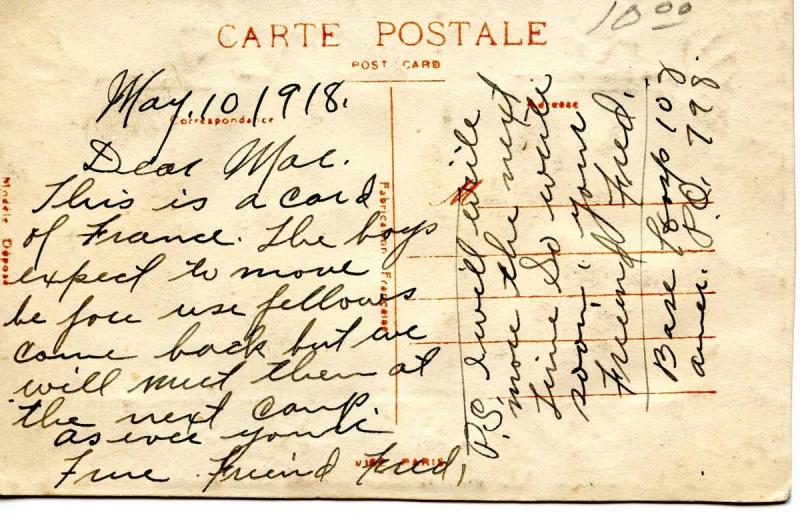 10.00
CARTE POSTALE
POST CARD
Correspondance
Adresse
May, 10 1918.
Dear Mac.
This is a card
of France. The boys
expect to move
be fore use fellows
come back but we
will meet them at
the next camp.
as ever your
True Friend Fred,
Modèle Déposé
Fabrication Française
VISÉ PARIS
P.S. I will write
more the next
time So write
soon. your
Friend Fred.
Base Hosp 108
Amer. P.O. 798.